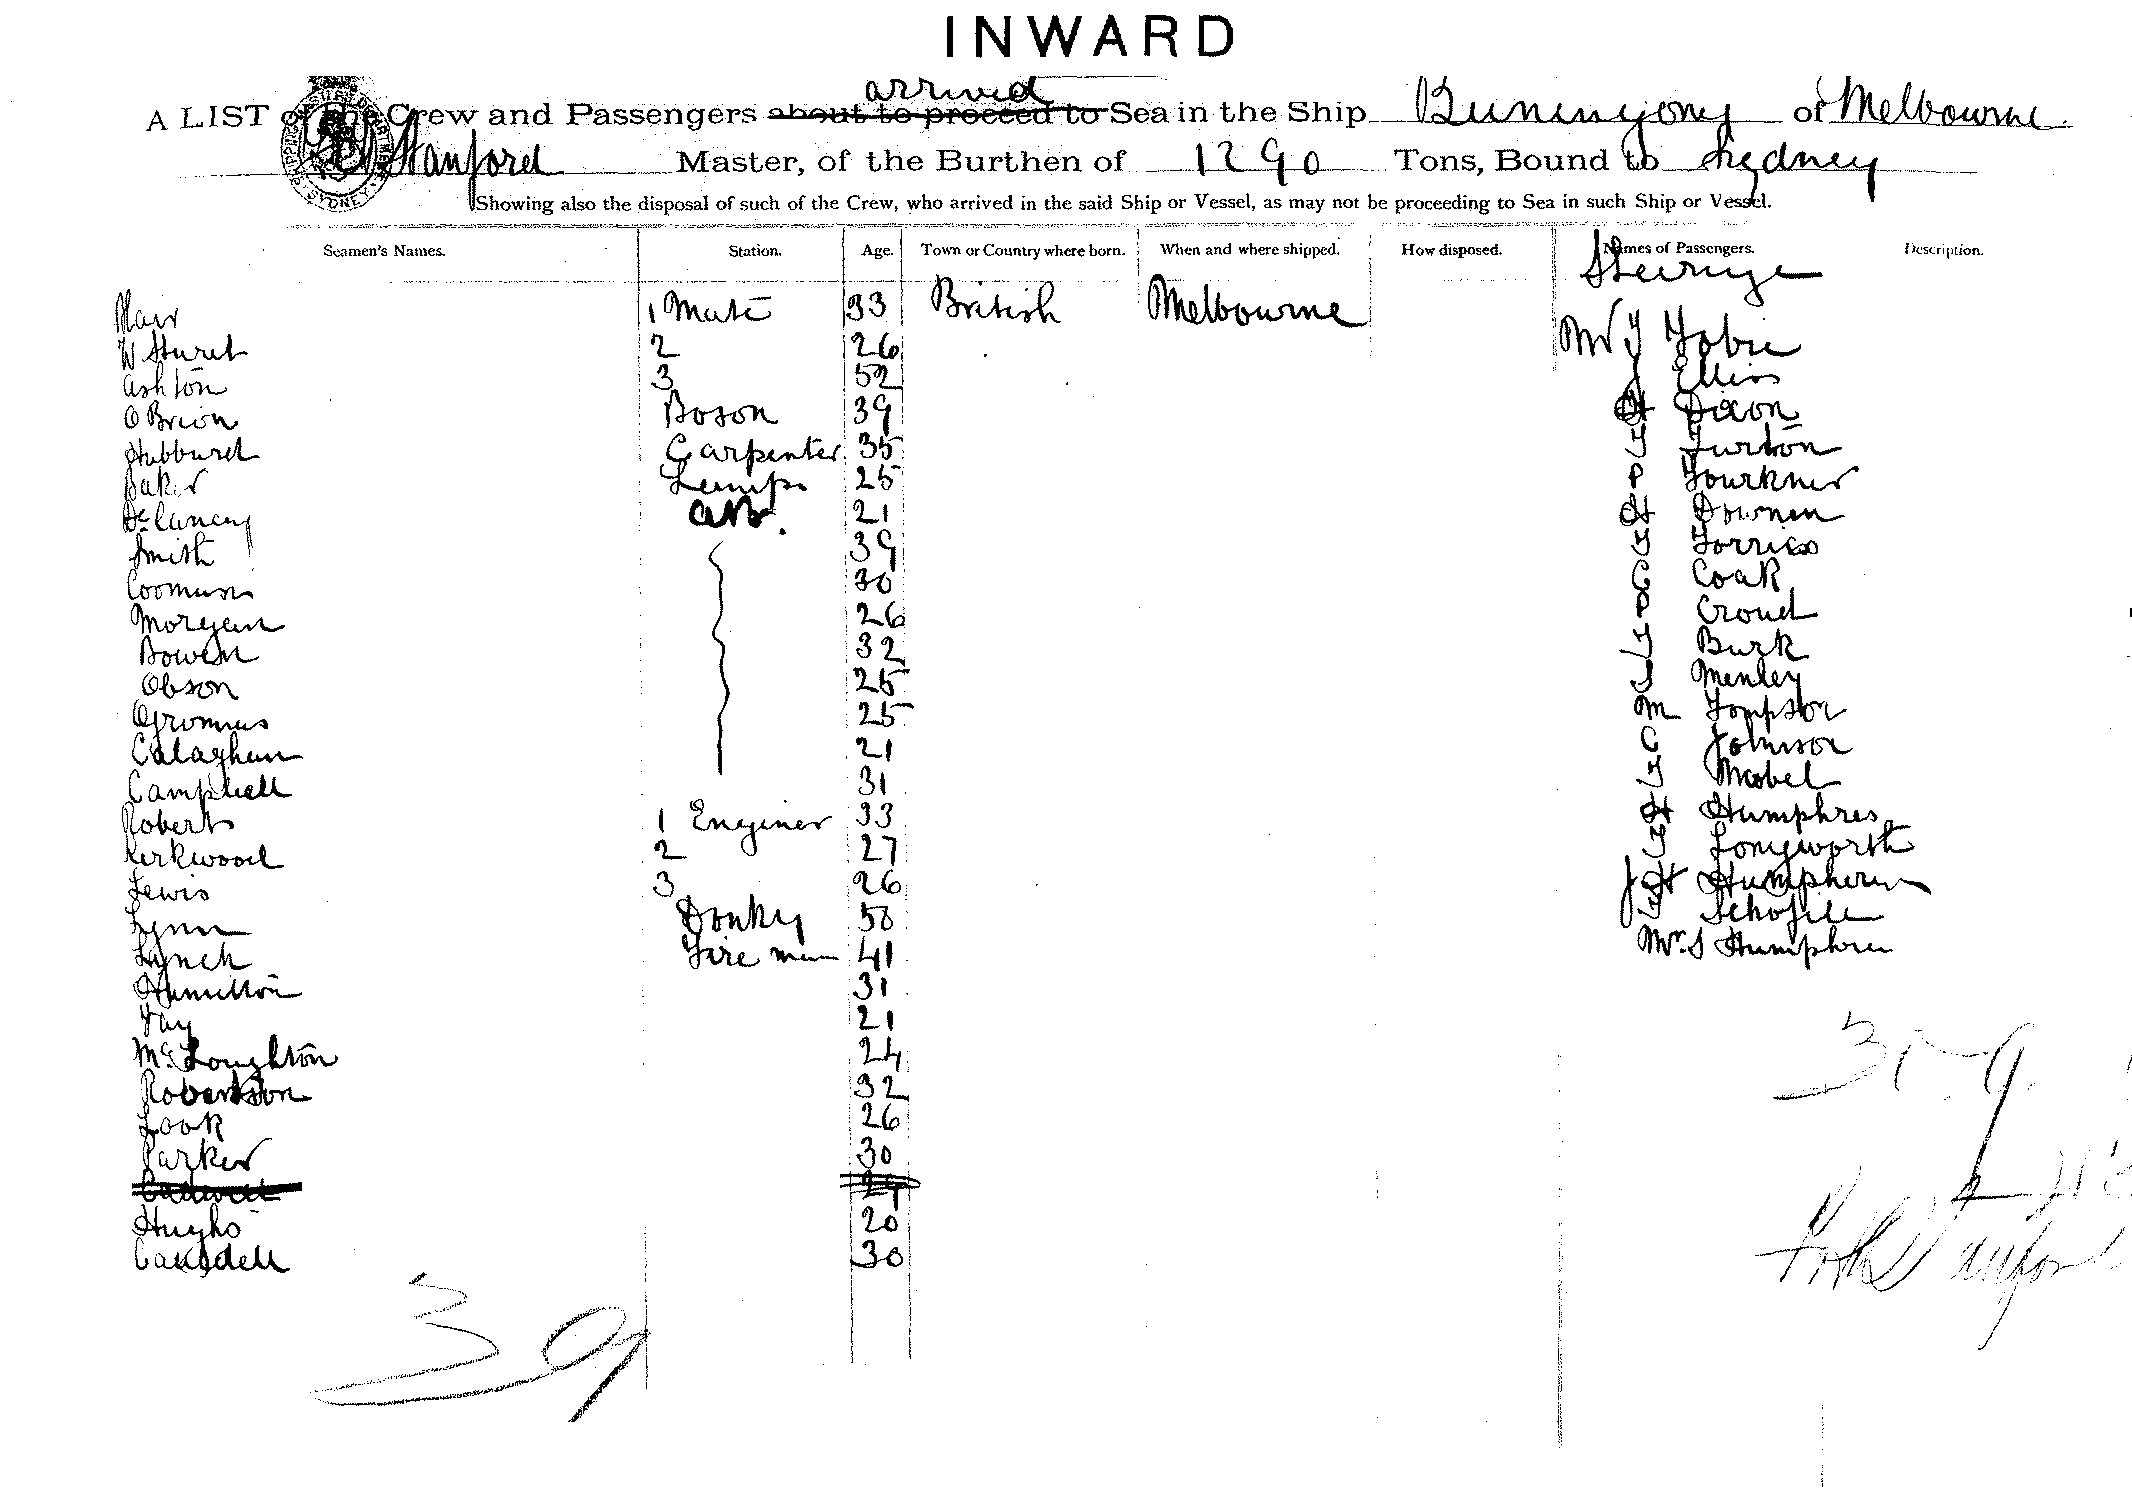 INWARD
arrived
A LIST of the Crew and Passengers about to proceed to Sea in the Ship Buninyong of Melbourne
Stanford Master, of the Burthen of 1290 Tons, Bound to Sydney
Showing also the disposal of such of the Crew, who arrived in the said Ship or Vessel, as may not be proceeding to Sea in such Ship or Vessel.
Seamen's Names. Station. Age. Town or Country where born. When and where shipped. How disposed. Names of Passengers. Description.
Steerage
1 Mate 33 British Melbourne
Mr J Tobie
W Sturet 2 26
J Ellis
Ashton 3 52
Dixon
O Brion Boson 39
Turton
Hubburet Carpenter 35
Fourkner
Baker Lamps 25
Downen
De Lancey AB. 21
Smith 39
Coak
Coomusn 30
Croud
Morgan 26
Burk
Bowen 32
Menley
Obson 25
M Tompson
Gromus 25
Johnson
Calaghan 21
Mabel
Campbell 31
Humphres
Robert 1 Enginer 33
Longworth
Kerkwood 2 27
Lewis 3 26
Lynn Donky 50
Lynch Fire man 41
Mr. S Humphre
Hamilton 31
Fay 21
Mc Loughton 24
Robertson 32
Look 26
Parker 30
Hughs 20
Causdell 30
39